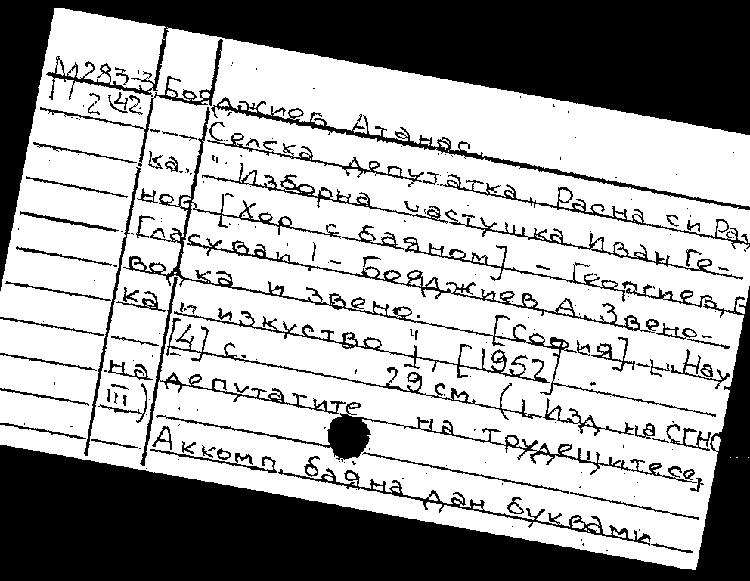 М283-3 Бояджиев, Атанас.
П 242
Селска депутатка, Расна си
ка. " Изборна частушка Иван Ге-
нов. [Хор с баяном]. - Георгиев,
Гласувай! - Бояджиев, А. Звено-
водка и звено. [София], "Нау
ка и изкуство", [1952].
[4] с. 29 см. (Изд. на СГНС
на депутатите на трудещитесе,
III)
Аккомп. баяна дан буквами